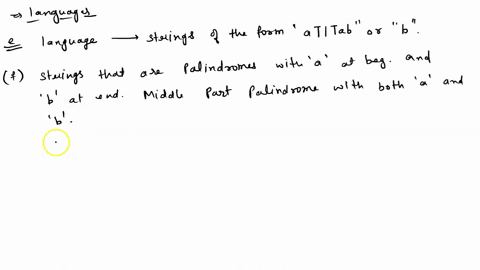 ⇒ languages
e language ⟶ strings of the form 'aT|Tab" or "b".
(f) strings that are Palindromes with 'a' at beg. and
'b' at end. Middle Part Palindrome with both 'a' and
'b'.